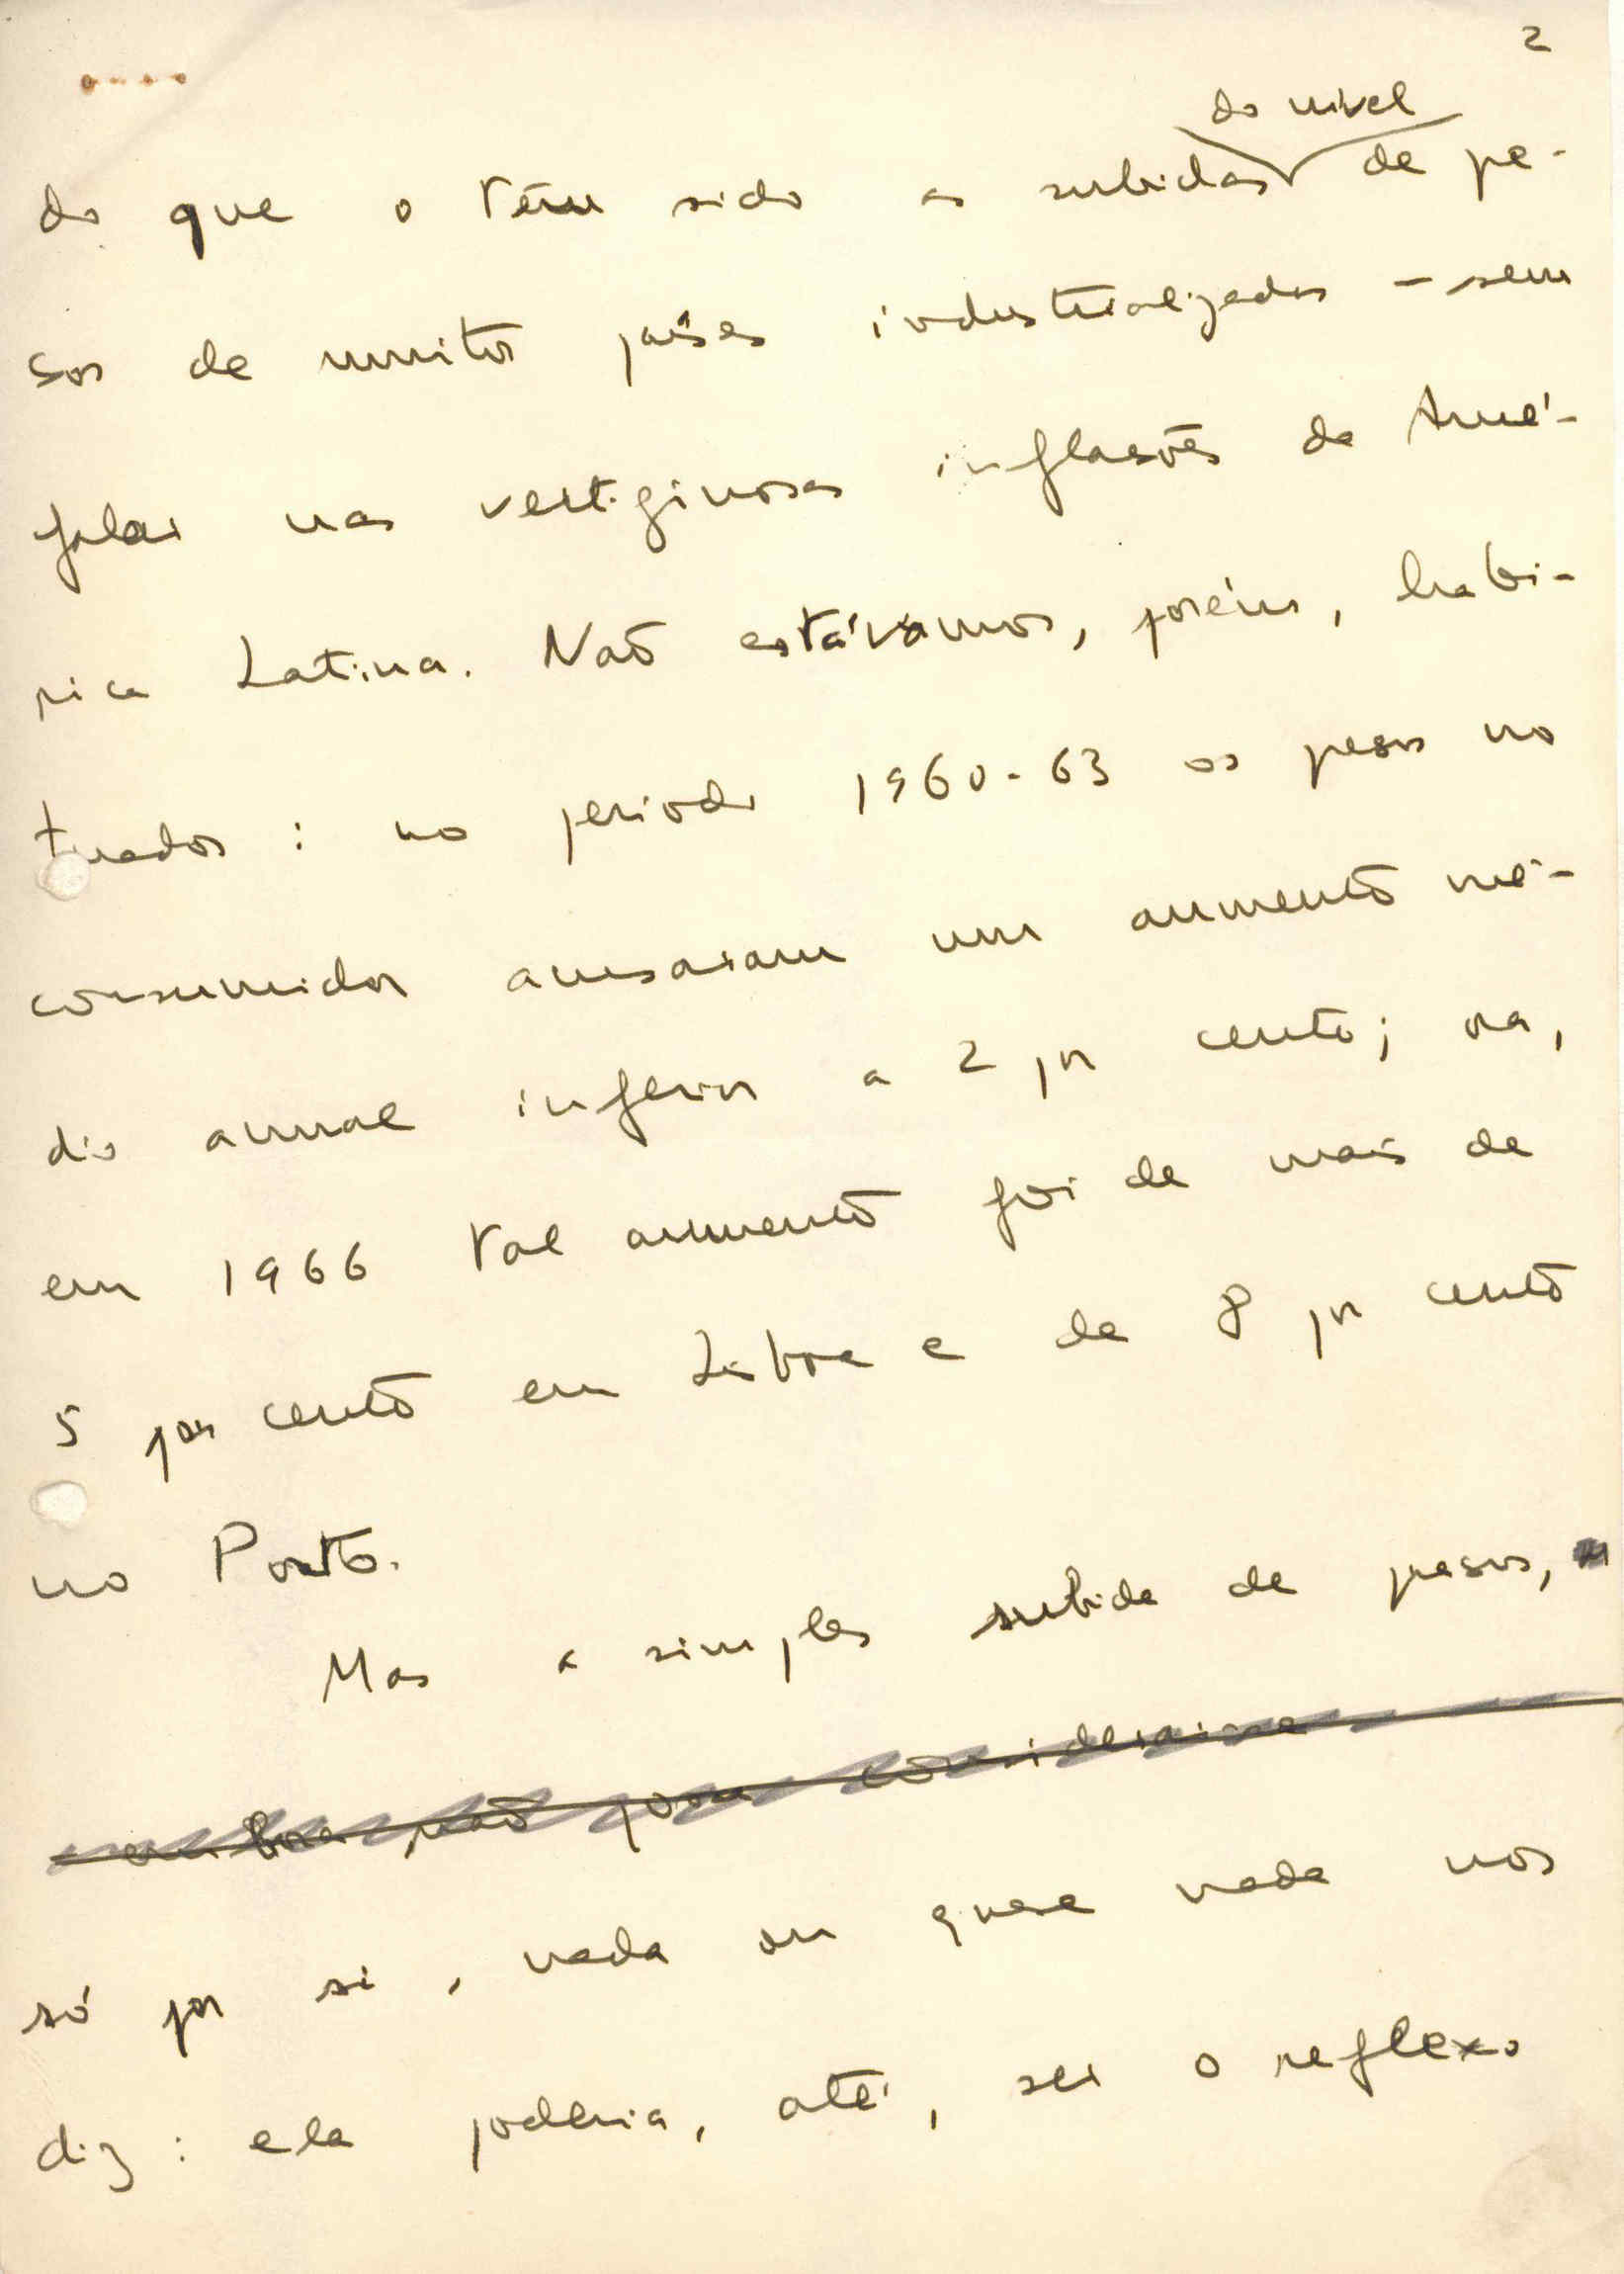 2
do nível
do que o têm sido as subidas de pre-
ços de muitos países industrializados - sem
falar nas vertiginosas inflações da Amé-
rica Latina. Não estávamos, porém, habi-
tuados : no período 1960-63 os preços no
consumidor acusaram um aumento mé-
dio anual inferior a 2 por cento; ora,
em 1966 tal aumento foi de mais de
5 por cento em Lisboa e de 8 por cento
no Porto.
Mas a simples subida de preços,
embora não possa considerar-se
só por si, nada ou quase nada nos
diz : ela poderia, até, ser o reflexo